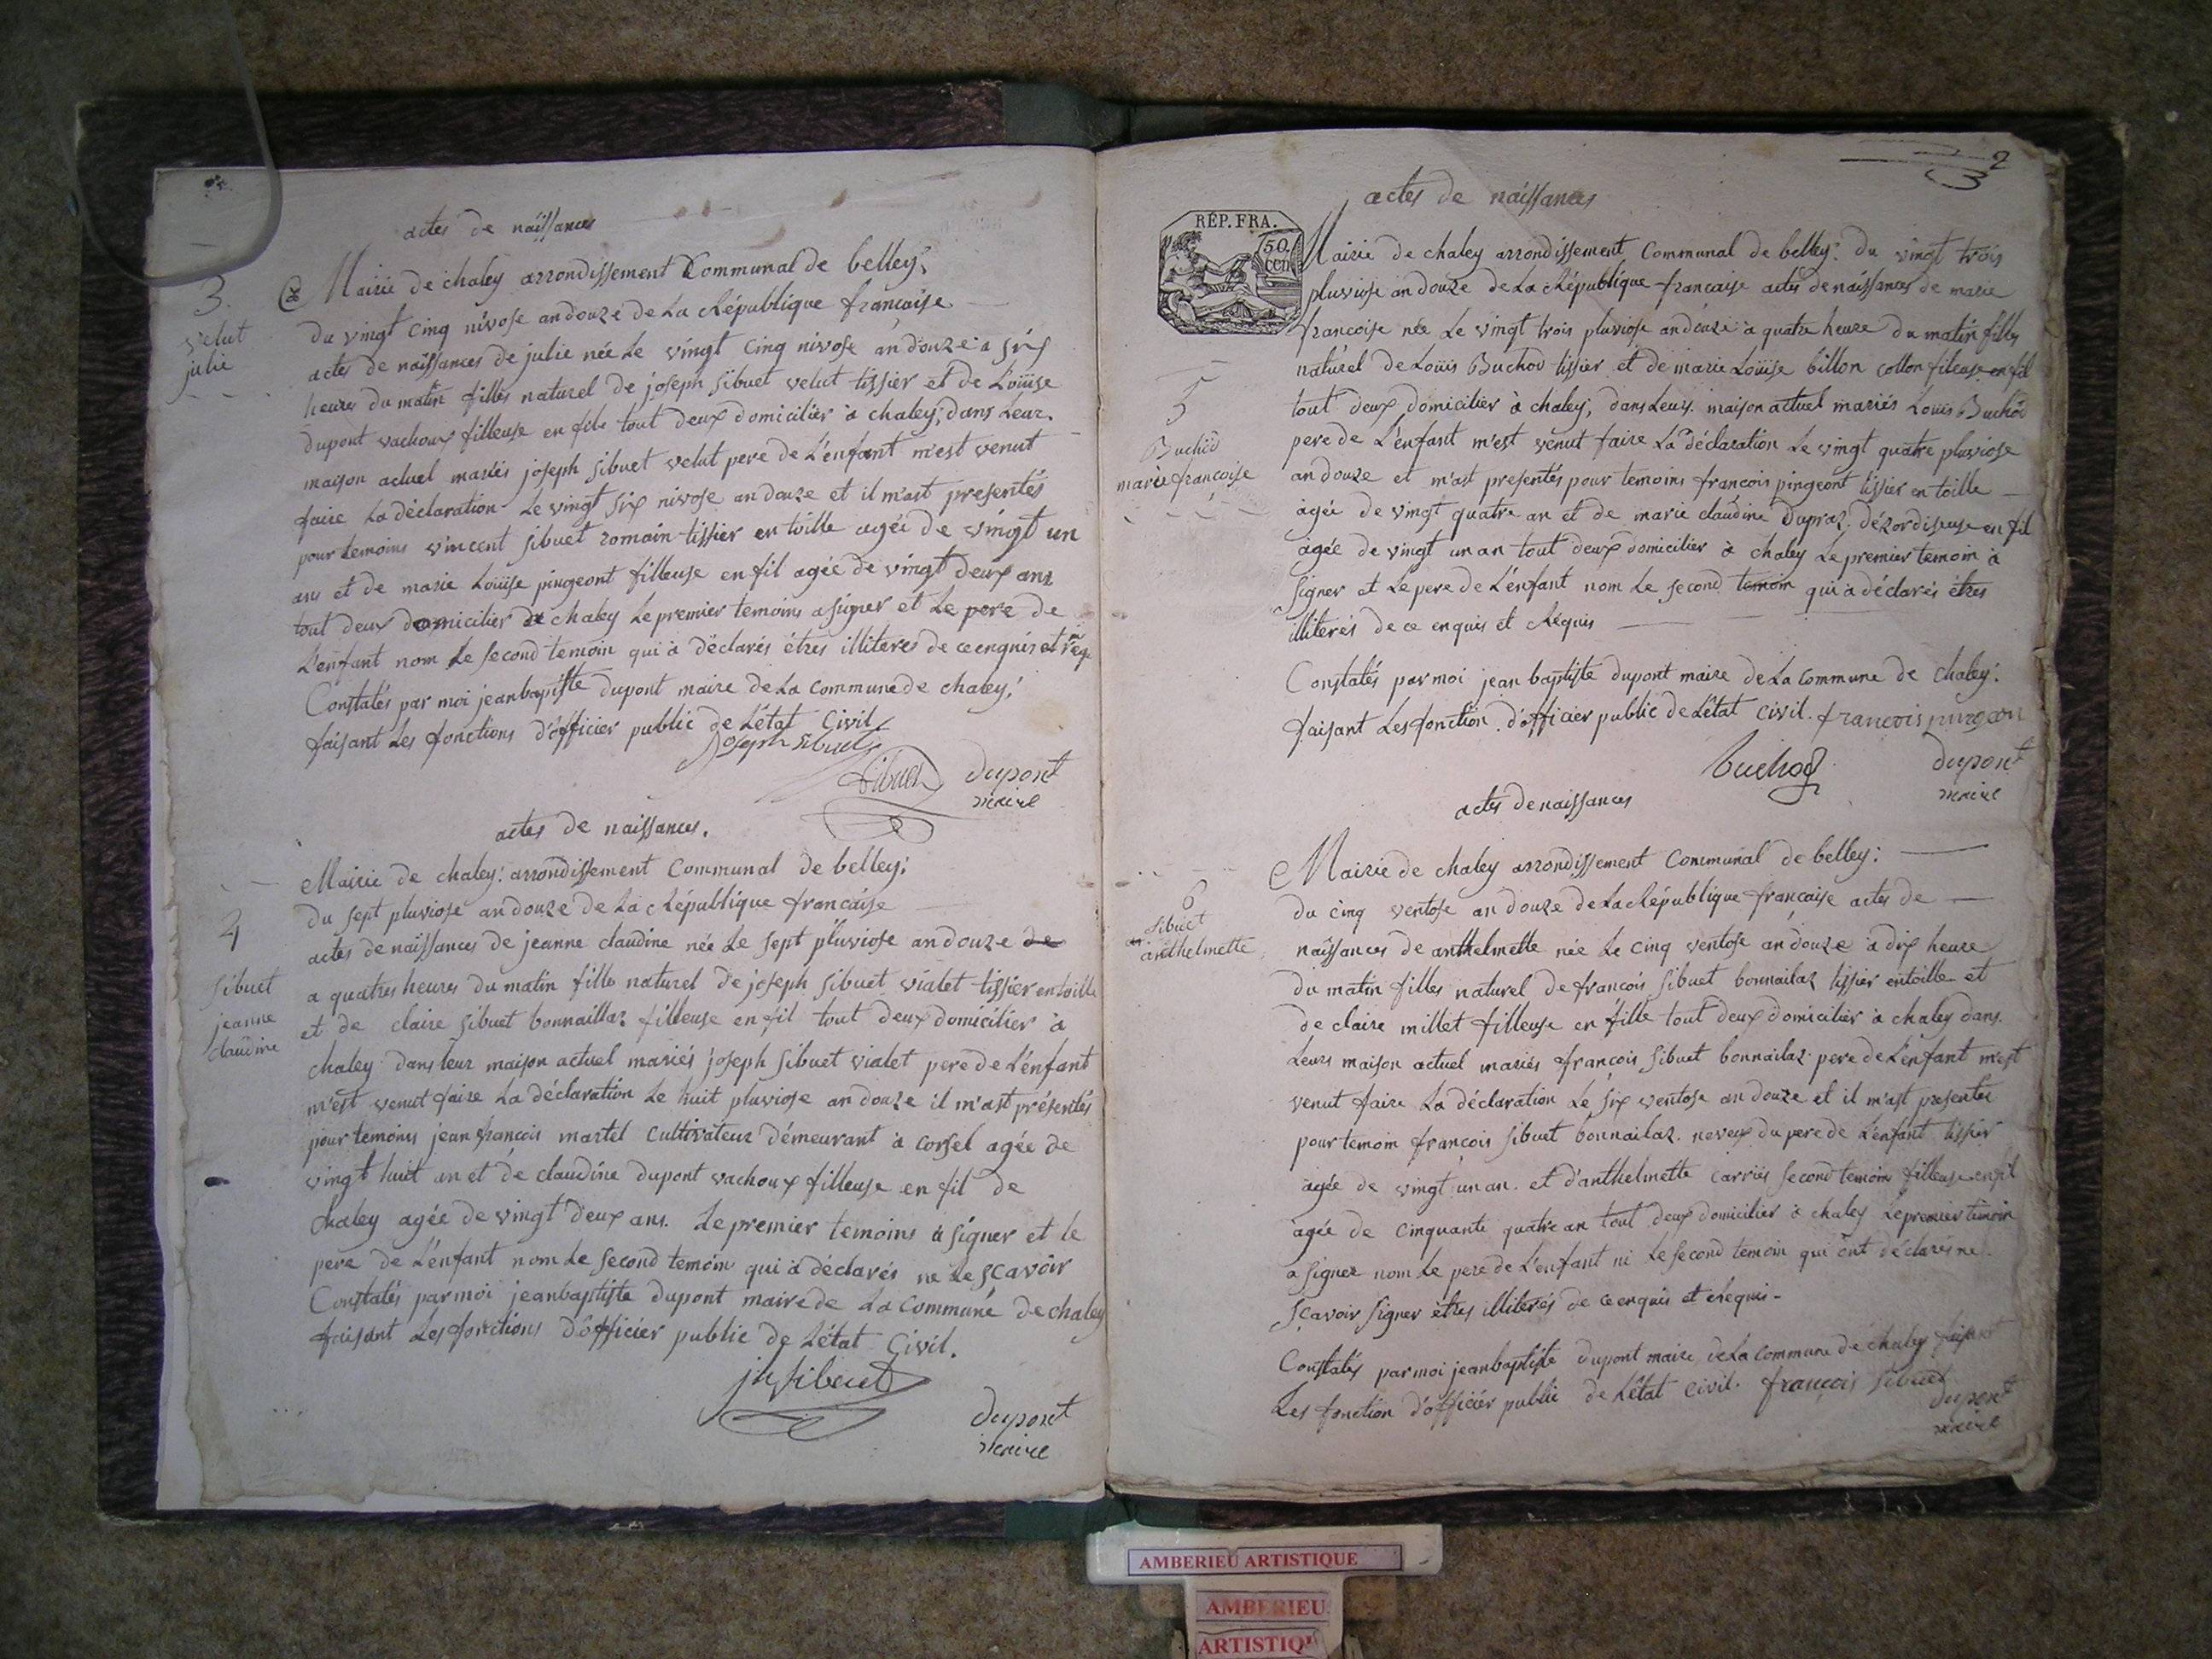 actes de naissances
3
velut
julie
Mairie de chaley arrondissement Communal de belley;
Du vingt cinq nivose an douze de La République française
actes de naissances de julie née Le vingt cinq nivose an douze a six
heures du matin filles naturel de joseph sibuet velut tissier et de Louise
dupont vachoux filleuse en file tout deux domicilier à chaley, dans Leur
maison actuel mariés joseph sibuet velut pere de L'enfant m'est venut
faire La déclaration Le vingt six nivose an douze et il m'ast presentés
pour temoins vincent sibuet romain tissier en toille agée de vingt un
ans et de marie Louise pingeont filleuse en fil agée de vingt deux ans
tout deux domicilier de chaley Le premier temoins a signer et Le pere de
L'enfant nom Le second temoin qui à déclarés étres illiteres de ce enquis et req
Constatés par moi jean baptiste dupont maire de La commune de chaley;
faisant Les fonctions d'officier public de L'état Civil
Joseph sibuet
Sibuet
Dupont
maire
actes de naissances.
4
sibuet
jeanne
claudine
Mairie de chaley: arrondissement Communal de belley:
Du sept pluviose an douze de La République francaise
actes de naissances de jeanne claudine née Le sept pluviose an douze de
a quatres heures du matin fille naturel de joseph sibuet vialet tissier en toille
et de claire sibuet bonnaillaz filleuse en fil tout deux domicilier à
chaley dans leur maison actuel mariés joseph sibuet vialet pere de L'énfant
m'est venut faire La déclaration Le huit pluviose an douze il m'ast présentés
pour temoins jean francois martel cultivateur démeurant à corsel agée de
vingt huit an et de claudine dupont vachoux filleuse en fil de
chaley agée de vingt deux ans. Le premier temoins à signer et le
pere de L'énfant nom Le second temoin qui à déclarés ne Le sçavoir
Constatés par moi jeanbaptiste dupont maire de La commune de chaley
faisant Les fonctions d'officier public de L'état Civil.
jh sibuet
Dupont
maire
2
3
actes de naissances
RÉP. FRA.
50
cen.
5
Buchod
marie francoise
Mairie de chaley arrondissement Communal de belley: du vingt trois
pluviose an douze de La République francaise actes de naissances de marie
francoise née Le vingt trois pluviose an douze à quatre heure du matin filles
naturel de Louis Buchod tissier et de marie Louise billon collon fileuse en fil
tout deux domicilier à chaley, dans Leurs maison actuel mariés Louis Buchod
pere de L'énfant m'est venut faire La déclaration Le vingt quatre pluviose
an douze et m'ast presentés pour temoins francois pingeont tissier en toille
agée de vingt quatre an et de marie claudine Dupraz dézordiseuse en fil
agée de vingt un an tout deux domicilier à chaley Le premier temoin à
signer et Le pere de L'énfant nom Le second temoin qui à déclarés étres
illiterés de ce enquis et Réquis
Constatés par moi jean baptiste dupont maire de La commune de chaley:
faisant Les fonction d'officier public de L'état civil. francois pingeon
Buchod
Dupont
maire
actes de naissances
6
sibuet
anthelmette
Mairie de chaley arrondissement Communal de belley:
Du cinq ventose an douze de La République française actes de
naissances de anthelmette née Le cinq ventose an douze à dix heure
du matin filles naturel de francois sibuet bonnailaz tissier en toille et
de claire millet filleuse en fille tout deux domicilier à chaley dans
Leurs maison actuel mariés françois sibuet bonnailaz pere de L'enfant m'est
venut faire La déclaration Le six ventose an douze et il m'ast presentés
pour temoin françois sibuet bonnailaz neveux du pere de L'énfant tissier
agée de vingt un an. et d'anthelmette carriés second temoin filleuse en fil
agée de cinquante quatre an tout deux domicilier à chaley Le premier temoin
a signer nom Le pere de L'enfant ni Le second temoin qui ont déclarés ne
sçavoir signer étres illiterés de ce enquis et réquis-
Constatés par moi jeanbaptiste dupont maire de La commune de chaley faisant
Les fonction d'officiér public de L'état civil. françois sibuet
Dupont
maire
AMBERIEU ARTISTIQUE
AMBERIEU
ARTISTIQU